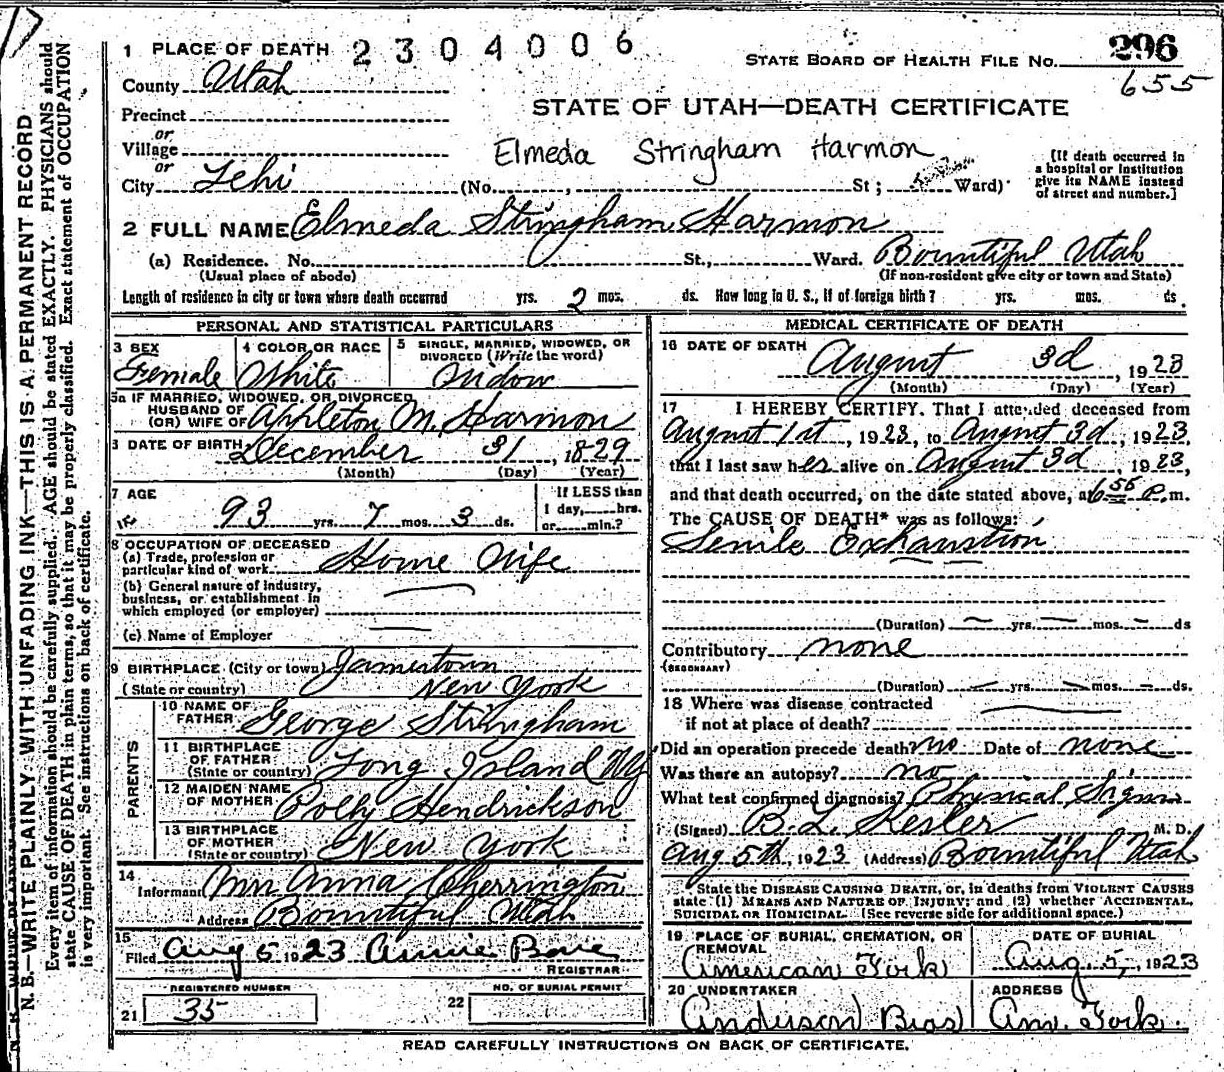 2304006
296
655
STATE BOARD OF HEALTH FILE NO.
1 PLACE OF DEATH
County Utah
STATE OF UTAH—DEATH CERTIFICATE
Precinct
or
Village
Elmeda Stringham Harmon
or
City Lehi (No. , St ; Ward)
[If death occurred in
a hospital or institution
give its NAME instead
of street and number.]
2 FULL NAME Elmeda Stringham Harmon
(a) Residence. No. St., Ward. Bountiful Utah
(Usual place of abode) (If non-resident give city or town and State)
Length of residence in city or town where death occurred yrs. 2 mos. ds. How long in U. S., if of foreign birth? yrs. mos. ds.
PERSONAL AND STATISTICAL PARTICULARS
3 SEX
Female
4 COLOR OR RACE
White
5 SINGLE, MARRIED, WIDOWED, OR
DIVORCED (Write the word)
Widow
5a IF MARRIED, WIDOWED, OR DIVORCED
HUSBAND OF
(OR) WIFE OF Appleton M. Harmon
DATE OF BIRTH December 31, 1829
(Month) (Day) (Year)
7 AGE
93 yrs. 7 mos. 3 ds.
If LESS than
1 day, hrs.
or min.?
8 OCCUPATION OF DECEASED
(a) Trade, profession or
particular kind of work Home Wife
(b) General nature of industry,
business, or establishment in
which employed (or employer)
(c) Name of Employer
9 BIRTHPLACE (City or town) Jamestown
(State or country) New York
PARENTS
10 NAME OF
FATHER George Stringham
11 BIRTHPLACE
OF FATHER
(State or country) Long Island NY
12 MAIDEN NAME
OF MOTHER Polly Hendrickson
13 BIRTHPLACE
OF MOTHER
(State or country) New York
14
Informant Mrs Anna Cherrington
Address Bountiful Utah
15
Filed Aug 5 1923 Annie
REGISTRAR
REGISTERED NUMBER
21 35
NO. OF BURIAL PERMIT
22
MEDICAL CERTIFICATE OF DEATH
16 DATE OF DEATH
August 3d, 1923
(Month) (Day) (Year)
17 I HEREBY CERTIFY. That I attended deceased from
August 1st, 1923, to August 3d, 1923,
that I last saw her alive on August 3d, 1923,
and that death occurred, on the date stated above, at 6 55 P. m.
The CAUSE OF DEATH* was as follows:
Senile Exhaustion
(Duration) yrs. mos. ds
Contributory none
(SECONDARY)
(Duration) yrs. mos. ds.
18 Where was disease contracted
if not at place of death?
Did an operation precede death? no Date of none
Was there an autopsy? no
What test confirmed diagnosis? Physical Signs
(Signed) B. L. Kesler M. D.
Aug 5th, 1923 (Address) Bountiful Utah
State the DISEASE CAUSING DEATH, or, in deaths from VIOLENT CAUSES
state (1) MEANS AND NATURE OF INJURY; and (2) whether ACCIDENTAL,
SUICIDAL OR HOMICIDAL. (See reverse side for additional space.)
19 PLACE OF BURIAL, CREMATION, OR
REMOVAL
American Fork
DATE OF BURIAL
Aug. 5, 1923
20 UNDERTAKER
Anderson Bros
ADDRESS
Am. Fork.
READ CAREFULLY INSTRUCTIONS ON BACK OF CERTIFICATE.
N. B.—WRITE PLAINLY WITH UNFADING INK—THIS IS A PERMANENT RECORD
Every item of information should be carefully supplied. AGE should be stated EXACTLY. PHYSICIANS should
state CAUSE OF DEATH in plain terms, so that it may be properly classified. Exact statement of OCCUPATION
is very important. See instructions on back of certificate.